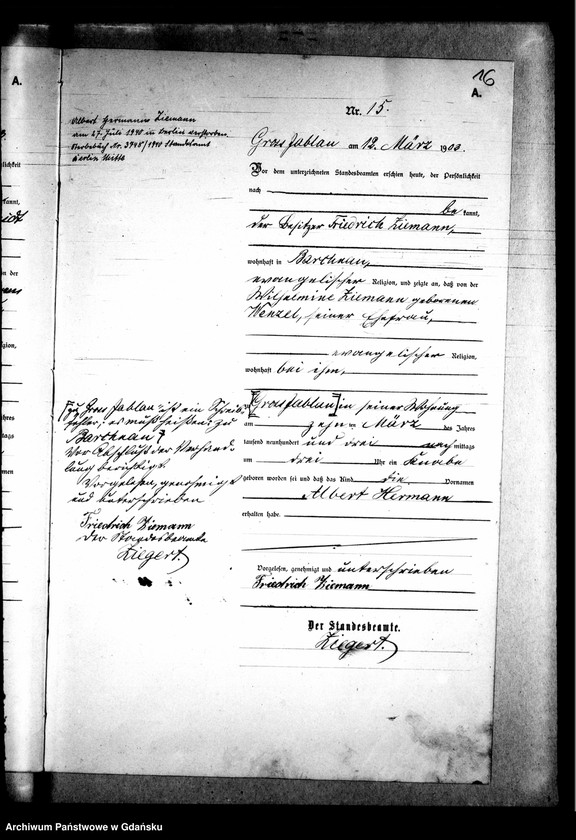 16
A.
A.
Nr. 15.
Albert Hermann Ziemann
am 27. Juli 1940 in Berlin verstorben.
Sterbebuch Nr. 3948/1940 Standesamt
Berlin Mitte
Gross Jablau am 12. März 1903.
Vor dem unterzeichneten Standesbeamten erschien heute, der Persönlichkeit
nach
be kannt,
der Besitzer Friedrich Ziemann,
wohnhaft in Barchnau,
evangelischer Religion, und zeigte an, daß von der
Wilhelmine Ziemann geborenen
Wenzel, seiner Ehefrau,
evangelischer Religion,
wohnhaft bei ihm,
zu Gross Jablau in seiner Wohnung
am zehn ten März des Jahres
tausend neunhundert und drei nach mittags
um drei Uhr ein Knabe
geboren worden sei und daß das Kind die Vornamen
Albert Hermann
erhalten habe.
"zu Gross Jablau" ist ein Schreib-
fehler, es muß heißen: zu
"Barchnau"
Vor Abschluß der Verhand-
lung berichtigt.
Vorgelesen, genehmigt
und unterschrieben
Friedrich Ziemann
Der Standesbeamte
Ziegert.
Vorgelesen, genehmigt und unterschrieben
Friedrich Ziemann
Der Standesbeamte.
Ziegert.
Archiwum Państwowe w Gdańsku